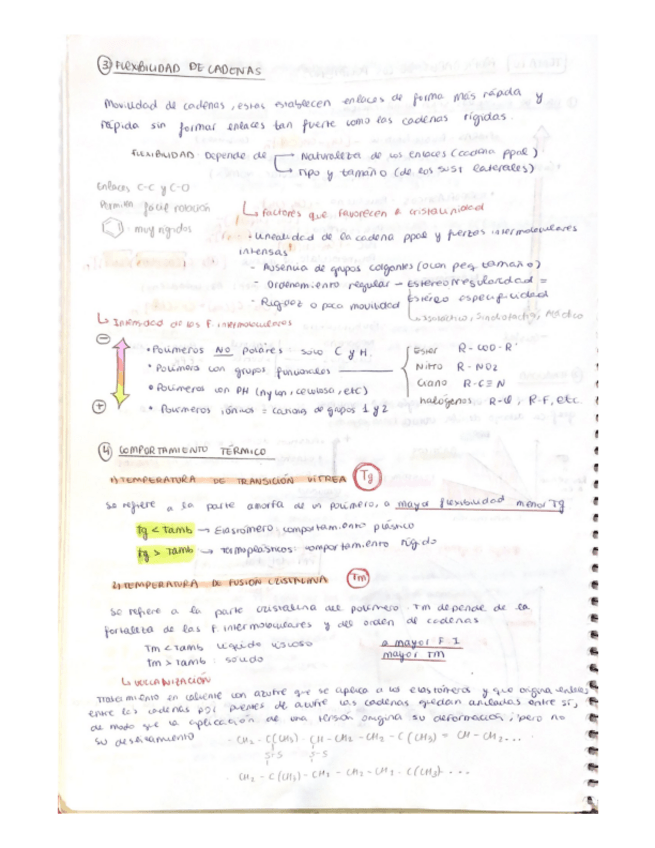 ③ FLEXIBILIDAD DE CADENAS
Movilidad de cadenas, estas establecen enlaces de forma más rápida y
rápida sin formar enlaces tan fuerte como las cadenas rígidas.
FLEXIBILIDAD Depende de → Naturaleza de los enlaces (cadena ppal)
→ Tipo y tamaño (de los sust laterales)
Enlaces C-C y C-O
Permiten fácil rotación
muy rígidos
↳ Factores que favorecen a cristalinidad
• Linealidad de la cadena ppal y fuerzas intermoleculares
intensas
- Ausencia de grupos colgantes (o con peq. tamaño)
- Ordenamiento regular - Estereorregularidad =
Estéreo especificidad
- Rigidez o poca movilidad
Isotáctico, Sindiotáctico, Atáctico
↳ Intensidad de las F. intermoleculares
⊖
• Polímeros NO polares: solo C y H.
• Polímero con grupos funcionales
• Polímeros con PH (nylon, celulosa, etc)
⊕ • Polímeros iónicos = cationes de grupos 1 y 2
Ester R-COO-R'
Nitro R-NO2
Ciano R-C≡N
halógenos R-Cl, R-F, etc.
④ COMPORTAMIENTO TÉRMICO
1) TEMPERATURA DE TRANSICIÓN VÍTREA Tg
Se refiere a la parte amorfa de un polímero, a mayor flexibilidad menor Tg
Tg < Tamb → Elastómero: comportamiento plástico
Tg > Tamb → Termoplásticos: comportamiento rígido
2) TEMPERATURA DE FUSIÓN CRISTALINA Tm
Se refiere a la parte cristalina del polímero. Tm depende de la
fortaleza de las F. intermoleculares y del orden de cadenas
Tm < Tamb líquido viscoso
Tm > Tamb: solido
a mayor F.I
mayor TM
↳ VULCANIZACIÓN
Tratamiento en caliente con azufre que se aplica a los elastómeros y que origina enlaces
entre las cadenas por puentes de azufre las cadenas quedan ancladas entre sí,
de modo que la aplicación de una tensión origina su deformación, pero no
su deslizamiento
- CH2 - C(CH3) - CH - CH2 - CH2 - C(CH3) = CH - CH2...
S-S S-S
- CH2 - C(CH3) - CH2 - CH2 - CH2 - C(CH3) - ...